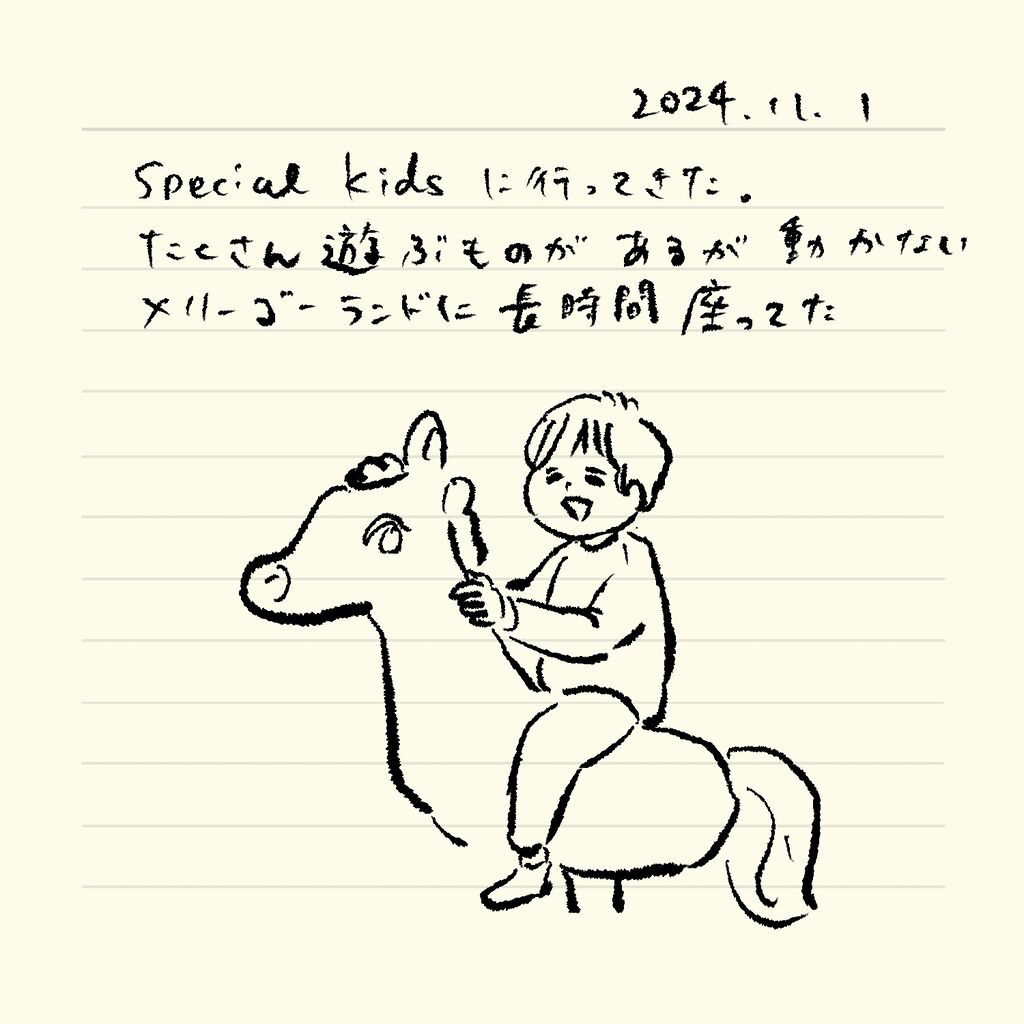 2024.11.1
Special kids に行ってきた。
たくさん遊ぶものがあるが動かない
メリーゴーランドに長時間座ってた